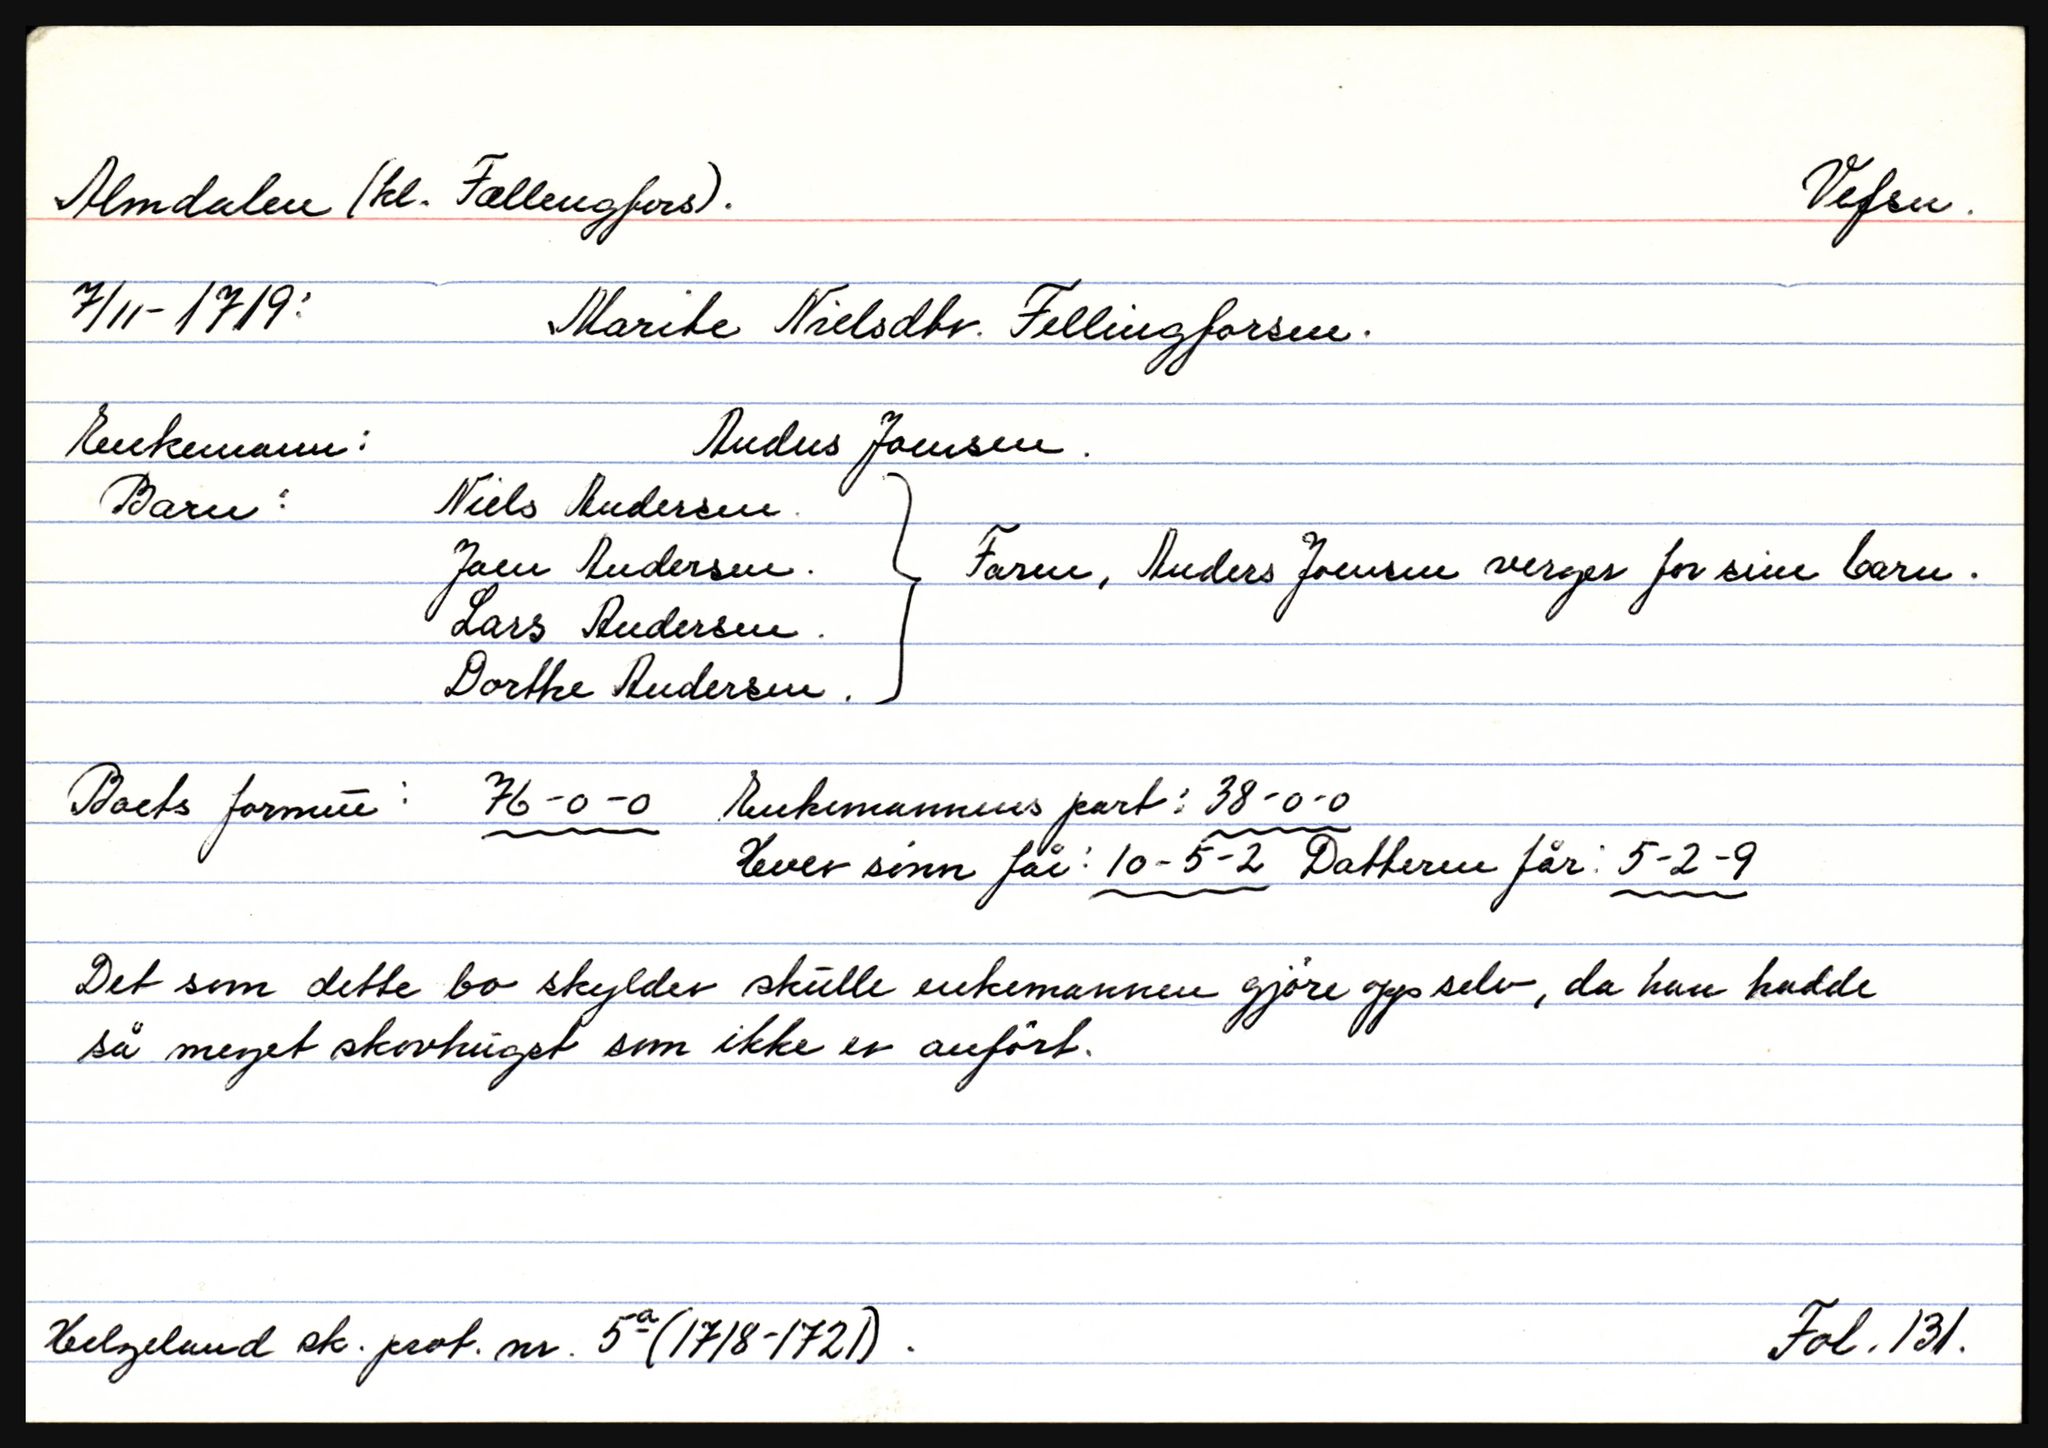 Almdalen (kl. Fællengfors). Vefsn.
7/11-1719: Marite Nielsdtr. Fellingforsen.
Enkemann: Anders Joensen.
Barn: Niels Andersen.
Joen Andersen.
Faren, Anders Joensen verger for sine barn.
Lars Andersen.
Dorthe Andersen.
Boets formue: 76-0-0 Enkemannens part: 38-0-0
Hver sönn får: 10-5-2 Datteren får: 5-2-9
Det som dette bo skylder skulle enkemannen gjöre opp selv, da han hadde
så meget skovhugst som ikke er anfört.
Helgeland sk. prot. nr. 5a (1718-1721). Fol. 131.